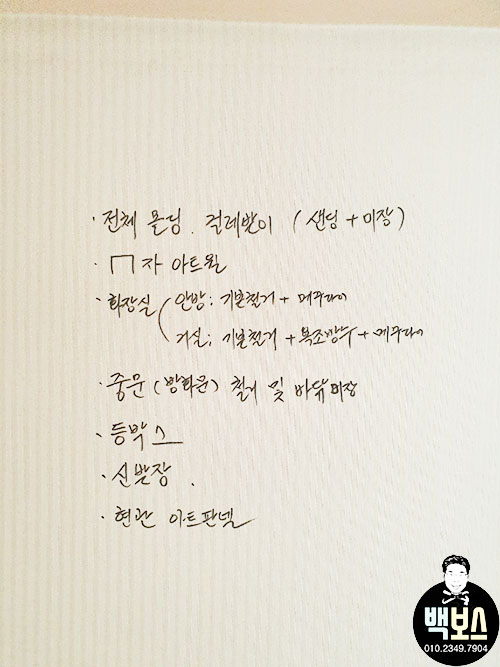 · 전체 몰딩. 걸레받이 (샌딩 + 미장)
· ㄇ자 아트월
· 화장실 ( 안방: 기본철거 + 메꾸라이
거실: 기본철거 + 욕조방수 + 메꾸라이
· 중문 (방화문) 철거 및 바닥미장
· 등박스
· 신발장.
· 현관 아트판넬
백보스
010.2349.7904